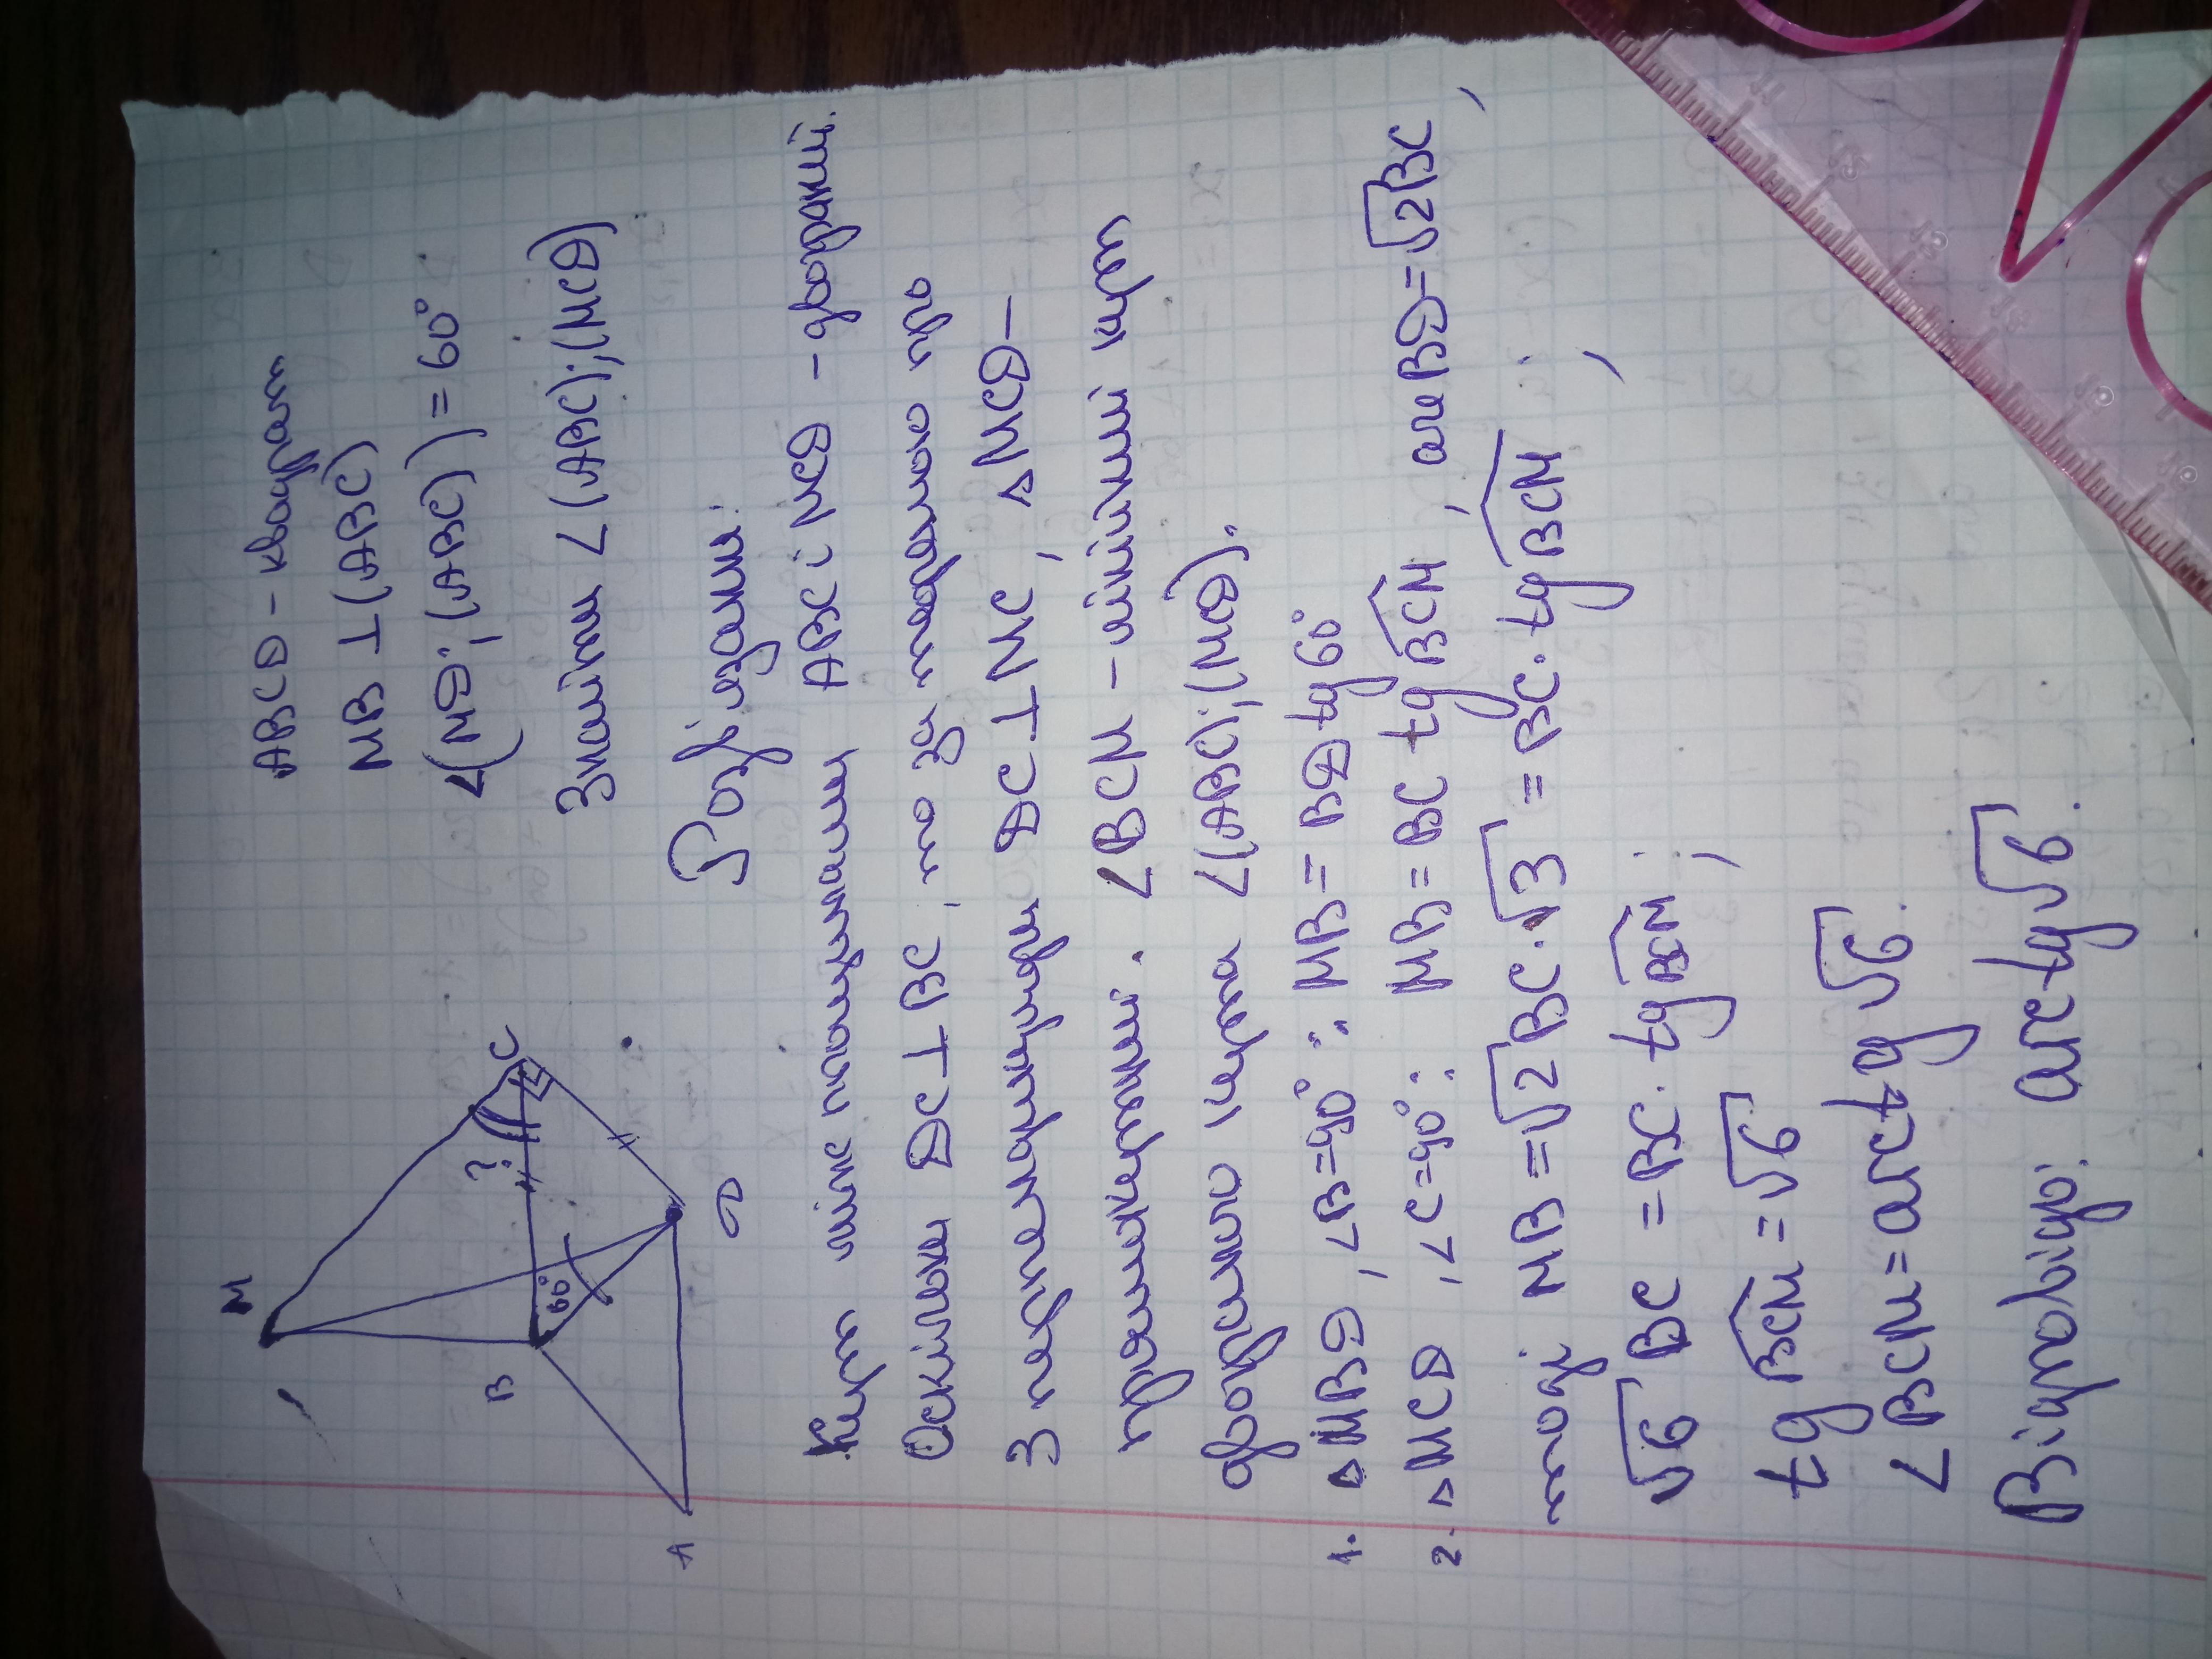 M
B
?
C
60°
A
D
ABCD - квадрат
MB ⊥ (ABC)
∠(MD;(ABC)) = 60°
Знайти ∠((ABC);(MCD))
Розв'язання:
Кут між площинами ABC і MCD - двогранний.
Оскільки DC ⊥ BC, і
З перпендикулярів DC ⊥ MC, △MCD -
прямокутний. ∠BCM - лінійний кут
∠((ABC);(MCD)).
1. △MBD, ∠B=90°: MB = BD tg60°
2. △MCB, ∠C=90°: MB = BC tg BCM, але BD = √2BC,
тоді MB = √2 BC · √3 = BC · tg BCM;
√6 BC = BC · tg BCM;
tg BCM = √6
∠BCM = arctg √6.
Відповідь: arctg √6.